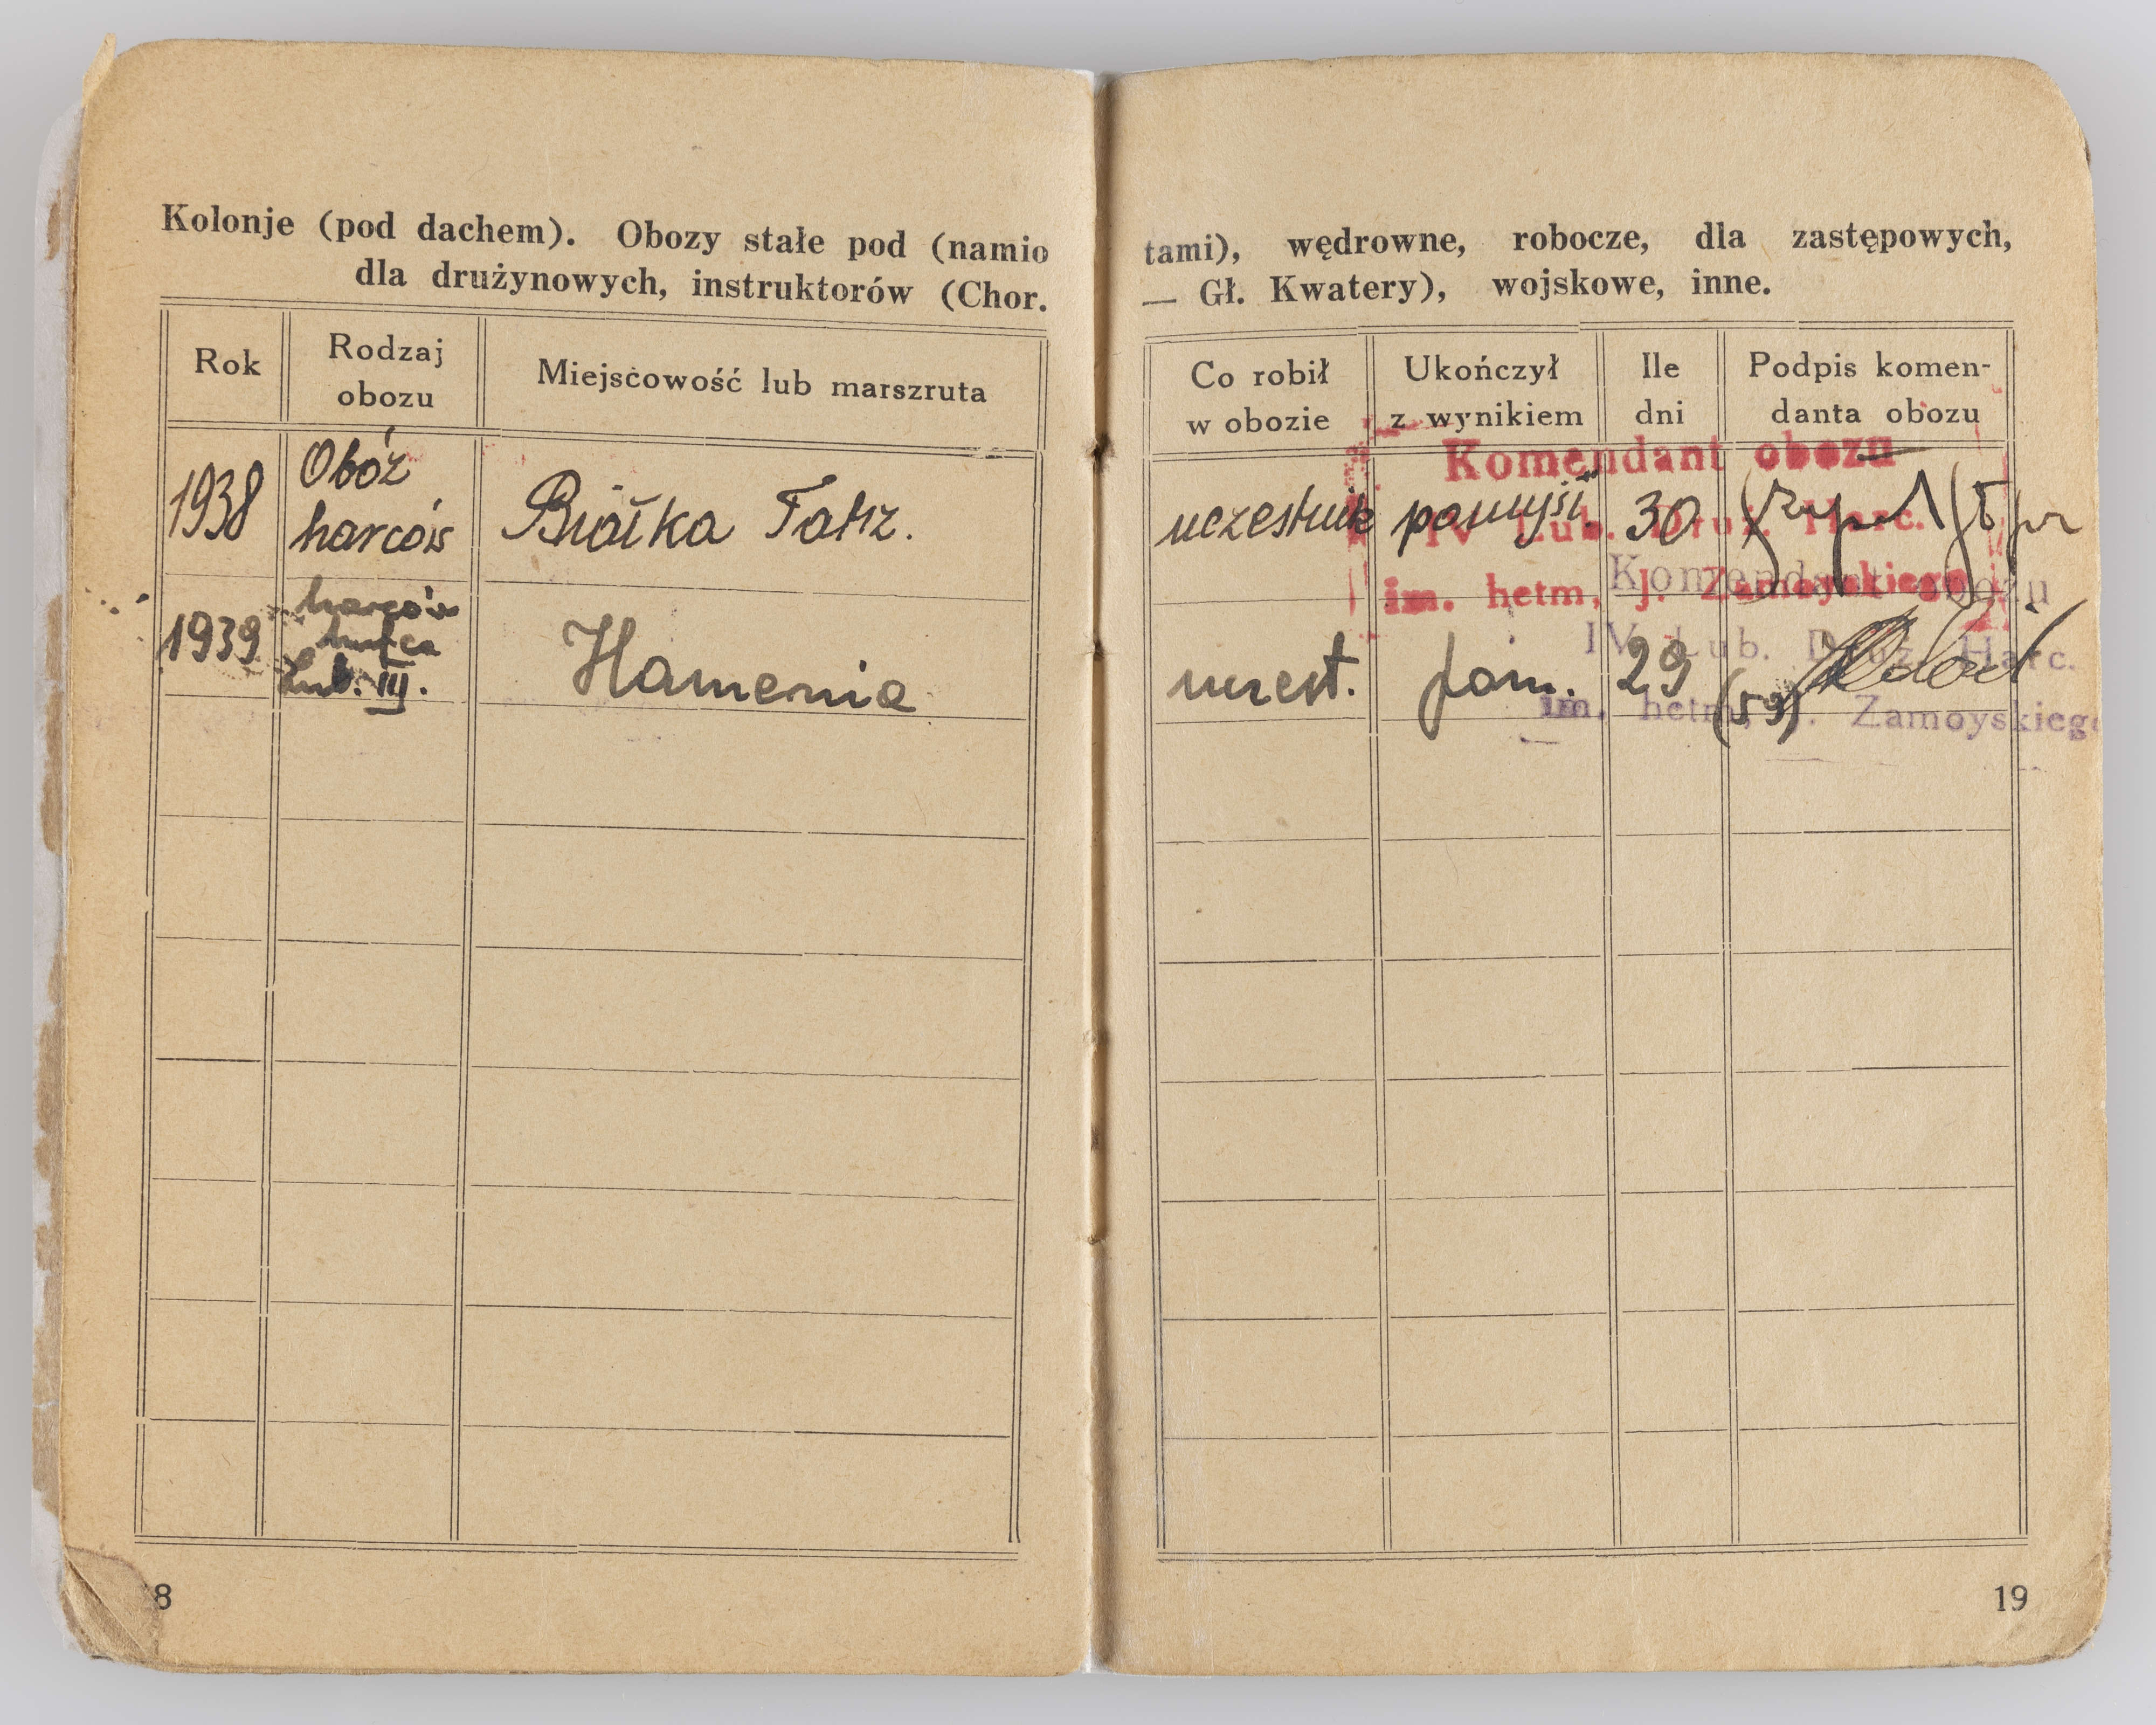 Kolonje (pod dachem). Obozy stałe pod (namio
dla drużynowych, instruktorów (Chor.
Rok
Rodzaj
obozu
Miejscowość lub marszruta
1938
Obóz
harców
Białka Tatrz.
1939
hufca
Lub. III.
Hamernia
8
tami), wędrowne, robocze, dla zastępowych,
— Gł. Kwatery), wojskowe, inne.
Co robił
w obozie
Ukończył
z wynikiem
Ile
dni
Podpis komen-
danta obozu
uczestnik
pomyśl.
30
Komendant obozu
IV Lub. Druż. Harc.
im. hetm, J. Zamoyskiego
uczest.
pom.
29
(59)
Komendant obozu
IV Lub. Druż. Harc.
im. hetm, J. Zamoyskiego
19